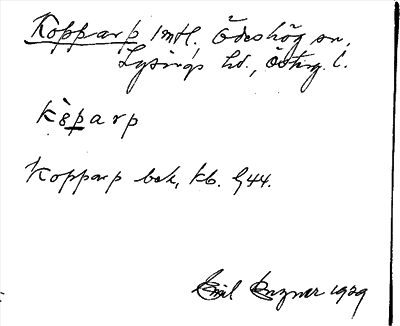 Kopparp 1 mtl, Ödeshög sn,
Lysings hd., Östrg. l.
kòparp
Kopparp bok, kb. 944.
Emil 1929